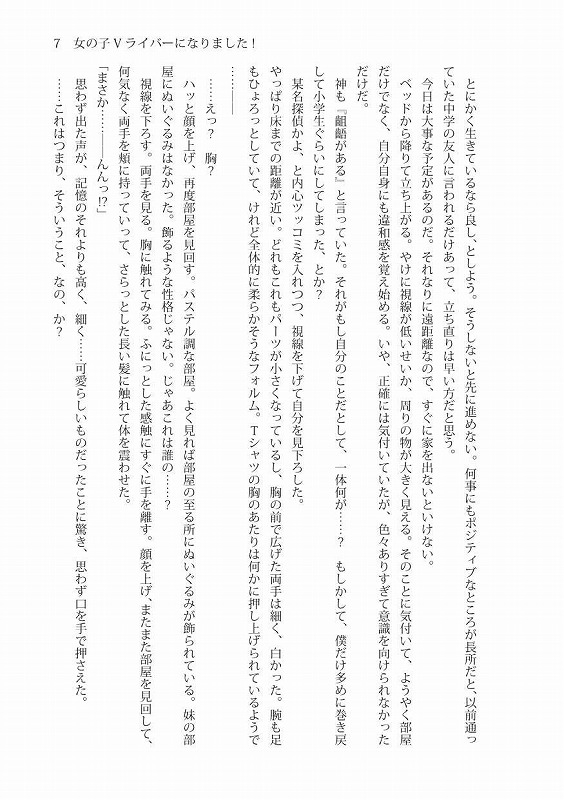 7　女の子Vライバーになりました！
　とにかく生きているなら良し、としよう。そうしないと先に進めない。何事にもポジティブなところが長所だと、以前通っ
ていた中学の友人に言われるだけあって、立ち直りは早い方だと思う。
　今日は大事な予定があるのだ。それなりに遠距離なので、すぐに家を出ないといけない。
　ベッドから降りて立ち上がる。やけに視線が低いせいか、周りの物が大きく見える。そのことに気付いて、ようやく部屋
だけでなく、自分自身にも違和感を覚え始める。いや、正確には気付いていたが、色々ありすぎて意識を向けられなかった
だけだ。
　神も『齟齬がある』と言っていた。それがもし自分のことだとして、一体何が……？　もしかして、僕だけ多めに巻き戻
して小学生ぐらいにしてしまった、とか？
　某名探偵かよ、と内心ツッコミを入れつつ、視線を下げて自分を見下ろした。
　やっぱり床までの距離が近い。どれもこれもパーツが小さくなっているし、胸の前で広げた両手は細く、白かった。腕も足
もひょろっとしていて、けれど全体的に柔らかそうなフォルム。Tシャツの胸のあたりは何かに押し上げられているようで
…………
　……えっ？　胸？
　ハッと顔を上げ、再度部屋を見回す。パステル調な部屋。よく見れば部屋の至る所にぬいぐるみが飾られている。妹の部
屋にぬいぐるみはなかった。飾るような性格じゃない。じゃあこれは誰の……？
　視線を下ろす。両手を見る。胸に触れてみる。ふにっとした感触にすぐに手を離す。顔を上げ、またまた部屋を見回して、
何気なく両手を頬に持っていって、さらっとした長い髪に触れて体を震わせた。
「まさか…………んんっ!?」
　思わず出た声が、記憶のそれよりも高く、細く……可愛らしいものだったことに驚き、思わず口を手で押さえた。
　……これはつまり、そういうこと、なの、か？